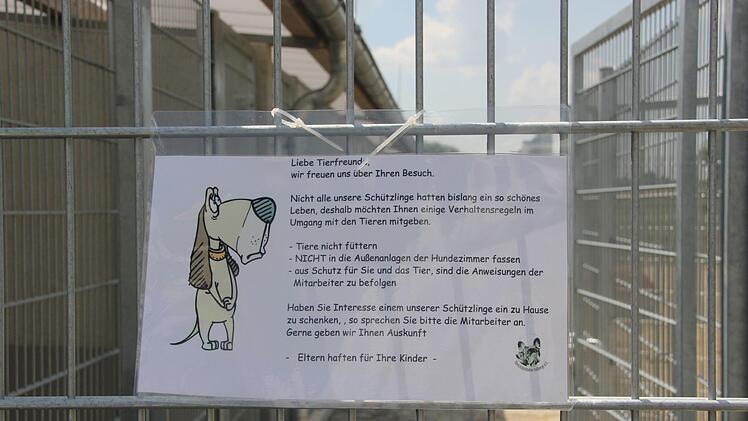 Liebe Tierfreunde,
wir freuen uns über Ihren Besuch.
Nicht alle unsere Schützlinge hatten bislang ein so schönes
Leben, deshalb möchten Ihnen einige Verhaltensregeln im
Umgang mit den Tieren mitgeben.
- Tiere nicht füttern
- NICHT in die Außenanlagen der Hundezimmer fassen
- aus Schutz für Sie und das Tier, sind die Anweisungen der
Mitarbeiter zu befolgen
Haben Sie Interesse einem unserer Schützlinge ein zu Hause
zu schenken, , so sprechen Sie bitte die Mitarbeiter an.
Gerne geben wir Ihnen Auskunft
- Eltern haften für Ihre Kinder -